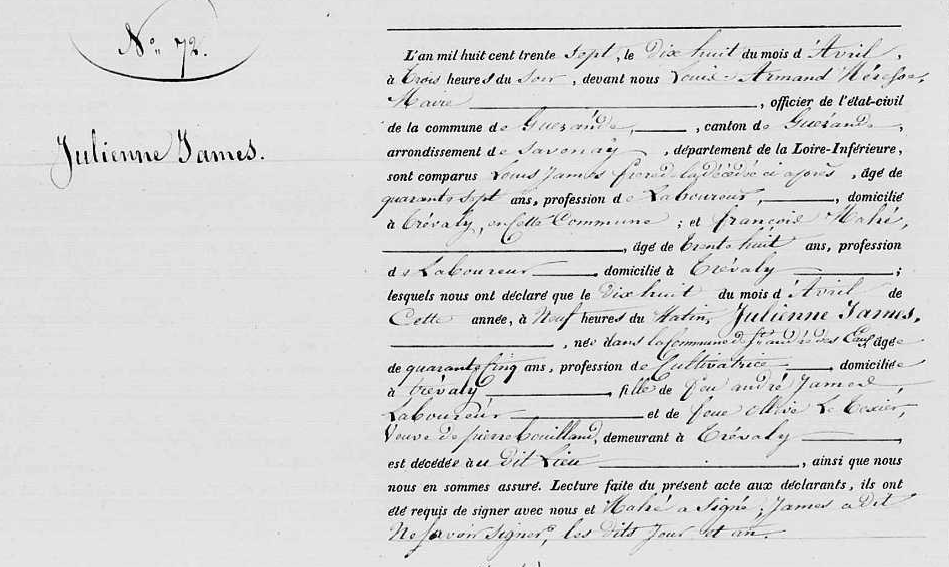 N° 72.
Julienne James.
L'an mil huit cent trente Sept, le Dix huit du mois d'Avril,
à Trois heures du Soir, devant nous Louis-Armand Méresse,
Maire, officier de l'état-civil
de la commune de Guérande, canton de Guérande,
arrondissement de Savenay, département de la Loire-Inférieure,
sont comparus Louis James frère de la décédée ci après, âgé de
quarante Sept ans, profession de Laboureur, domicilié
à Trévaly, en Cette Commune; et françois Mahé,
âgé de Trente huit ans, profession
de Laboureur domicilié à Trévaly;
lesquels nous ont déclaré que le Dix huit du mois d'Avril de
Cette année, à Neuf heures du Matin, Julienne James,
née dans la Commune de St. andré des Eaux, âgée
de quarante Cinq ans, profession de Cultivatrice, domiciliée
à Trévaly, fille de feu andré James,
Laboureur et de feue Olive Le Texier,
Veuve de pierre Couilland, demeurant à Trévaly,
est décédée au dit Lieu, ainsi que nous
nous en sommes assuré. Lecture faite du présent acte aux déclarants, ils ont
été requis de signer avec nous et Mahé a Signé; James a Dit
Ne Savoir Signer, les dits Jour et an.